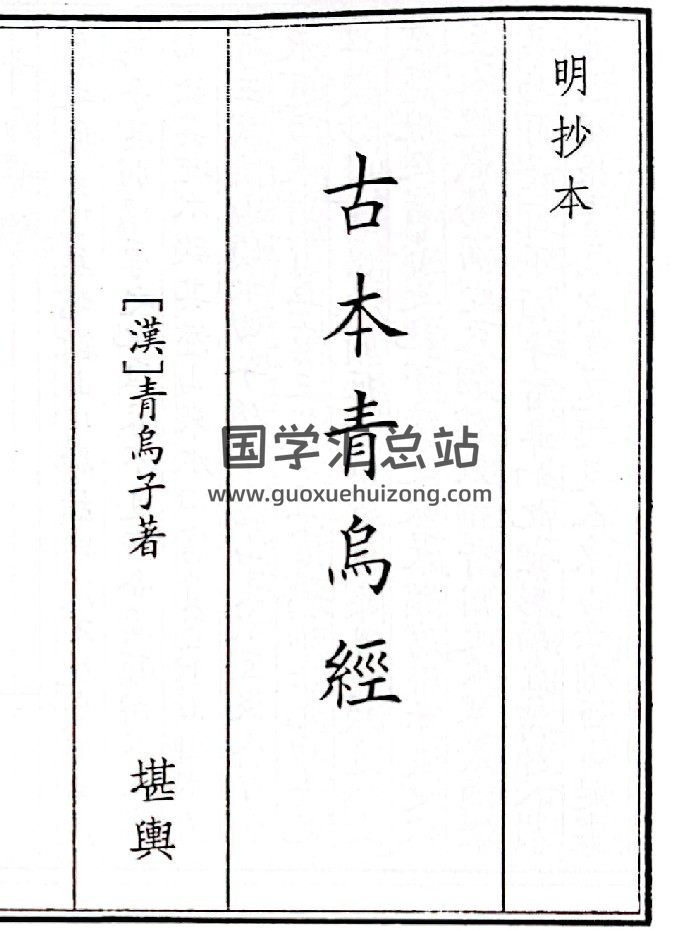 明抄本
古本青烏經
[漢]青烏子著
堪輿
国学汇总站
www.guoxuehuizong.com